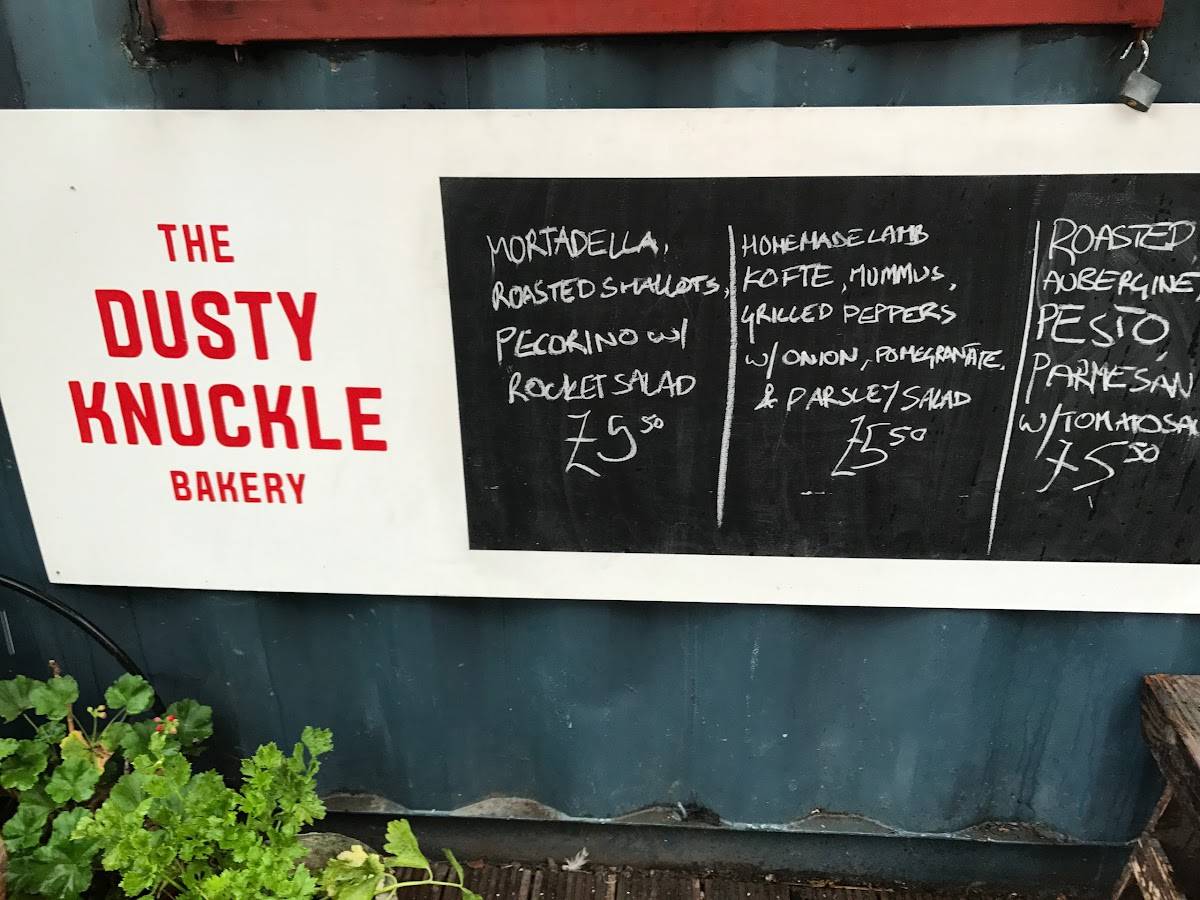 THE
DUSTY
KNUCKLE
BAKERY
MORTADELLA,
ROASTED SHALLOTS,
PECORINO W/
ROCKET SALAD
£5.50
HOMEMADE LAMB
KOFTE, HUMMUS,
GRILLED PEPPERS
W/ ONION, POMEGRANATE,
& PARSLEY SALAD
£5.50
ROASTED
AUBERGINE
PESTO,
PARMESAN
W/ TOMATO
£5.50